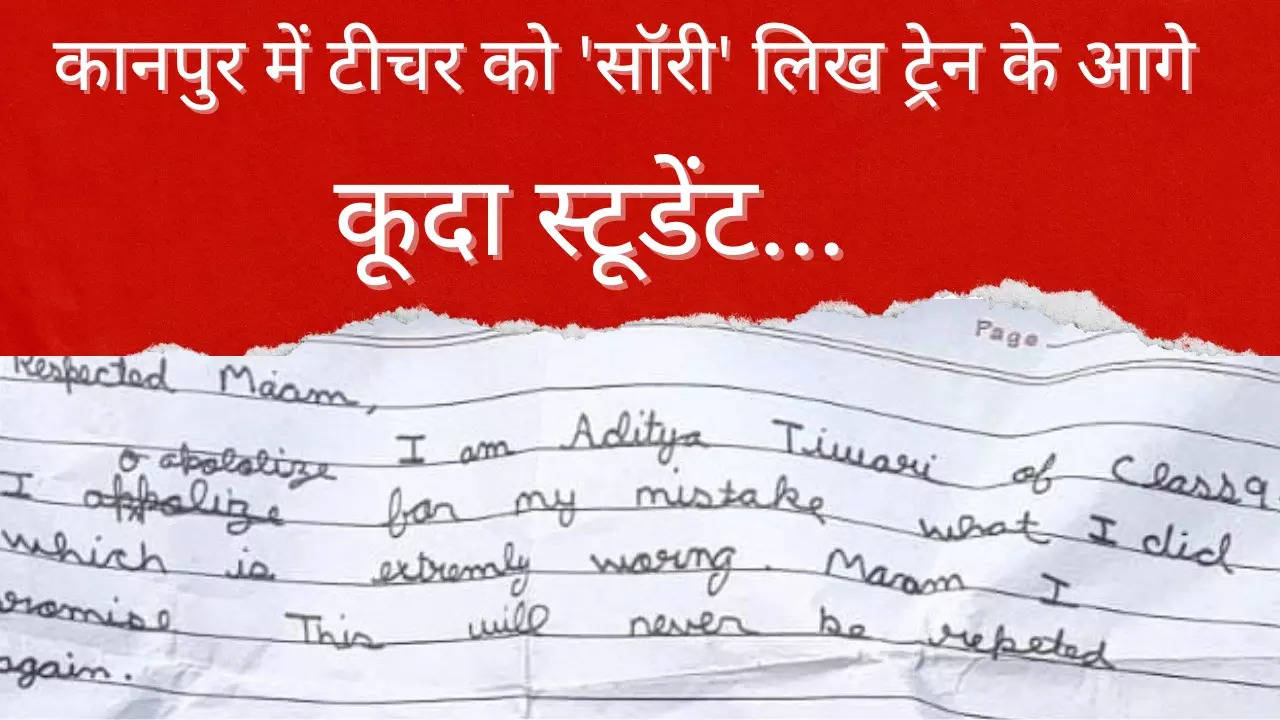 कानपुर में टीचर को 'सॉरी' लिख ट्रेन के आगे
कूदा स्टूडेंट...
Page
Respected Maam,
I am Aditya Tiwari of Class 9
apololize
I appolize for my mistake what I did
which is extremly worng. Maam I
romise This will never be repeted
again.